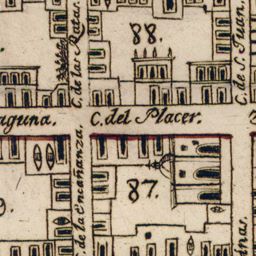 88.
C. de las Ratas.
C. de S. Juan.
aguna.
C. del Placer.
C. de la encañanza.
87.
9.